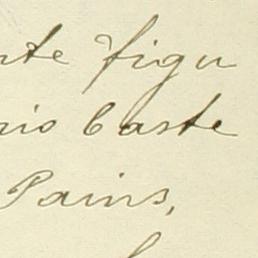 nte figu
rio Caste
Pains,